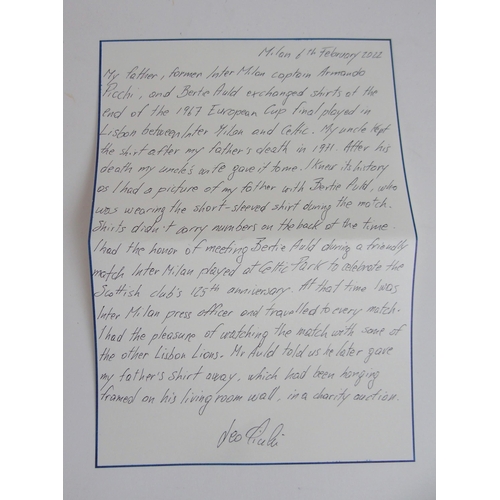 Milan 6th February 2022
My father, former Inter Milan captain Armando
Picchi, and Bertie Auld exchanged shirts at the
end of the 1967 European Cup final played in
Lisbon between Inter Milan and Celtic. My uncle kept
the shirt after my father's death in 1971. After his
death my uncle's wife gave it to me. I knew its history
as I had a picture of my father with Bertie Auld, who
was wearing the short-sleeved shirt during the match.
Shirts didn't carry numbers on the back at the time.
I had the honor of meeting Bertie Auld during a friendly
match Inter Milan played at Celtic Park to celebrate the
Scottish club's 125th anniversary. At that time I was
Inter Milan press officer and travelled to every match.
I had the pleasure of watching the match with some of
the other Lisbon Lions. Mr Auld told us he later gave
my father's shirt away, which had been hanging
framed on his living room wall, in a charity auction.
Leo Picchi